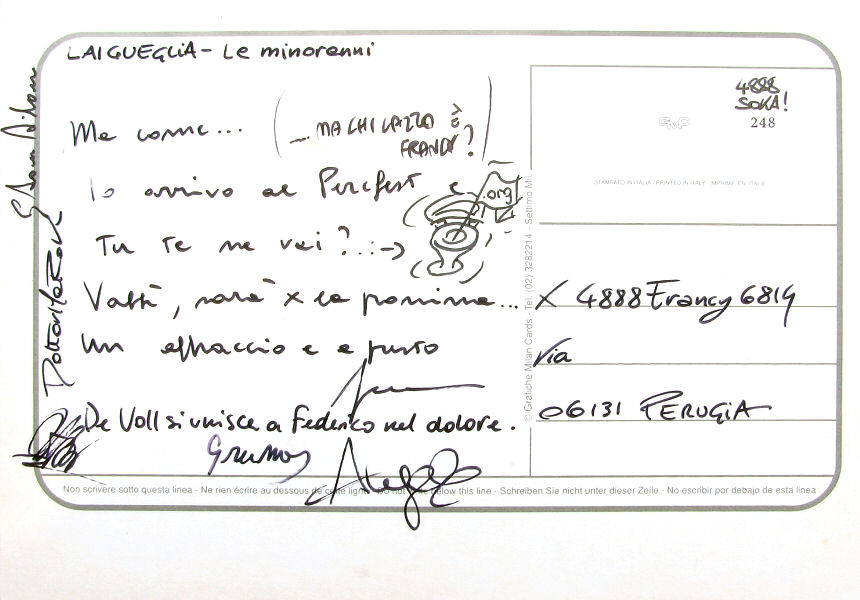 LAIGUEGLIA - Le minorenni
Ma come...
(... MA CHI CAZZO È FRANCY?)
Io arrivo al Percfest e
Tu te ne vai? ..:->
Vabbè, sarà x la prossima...
Un abbraccio e a presto
De Voll si unisce a Federico nel dolore.
4888
SOKA!
GMC
248
STAMPATO IN ITALIA - PRINTED IN ITALY - IMPRIMÉ EN ITALIE
X 4888 Francy 6819
Via
06131 PERUGIA
© Grafiche Milan Cards - Tel. (02) 3282214 - Settimo Mil.
Non scrivere sotto questa linea - Ne rien écrire au dessous de cette ligne - Do not write below this line - Schreiben Sie nicht unter dieser Zeile - No escribir por debajo de esta linea